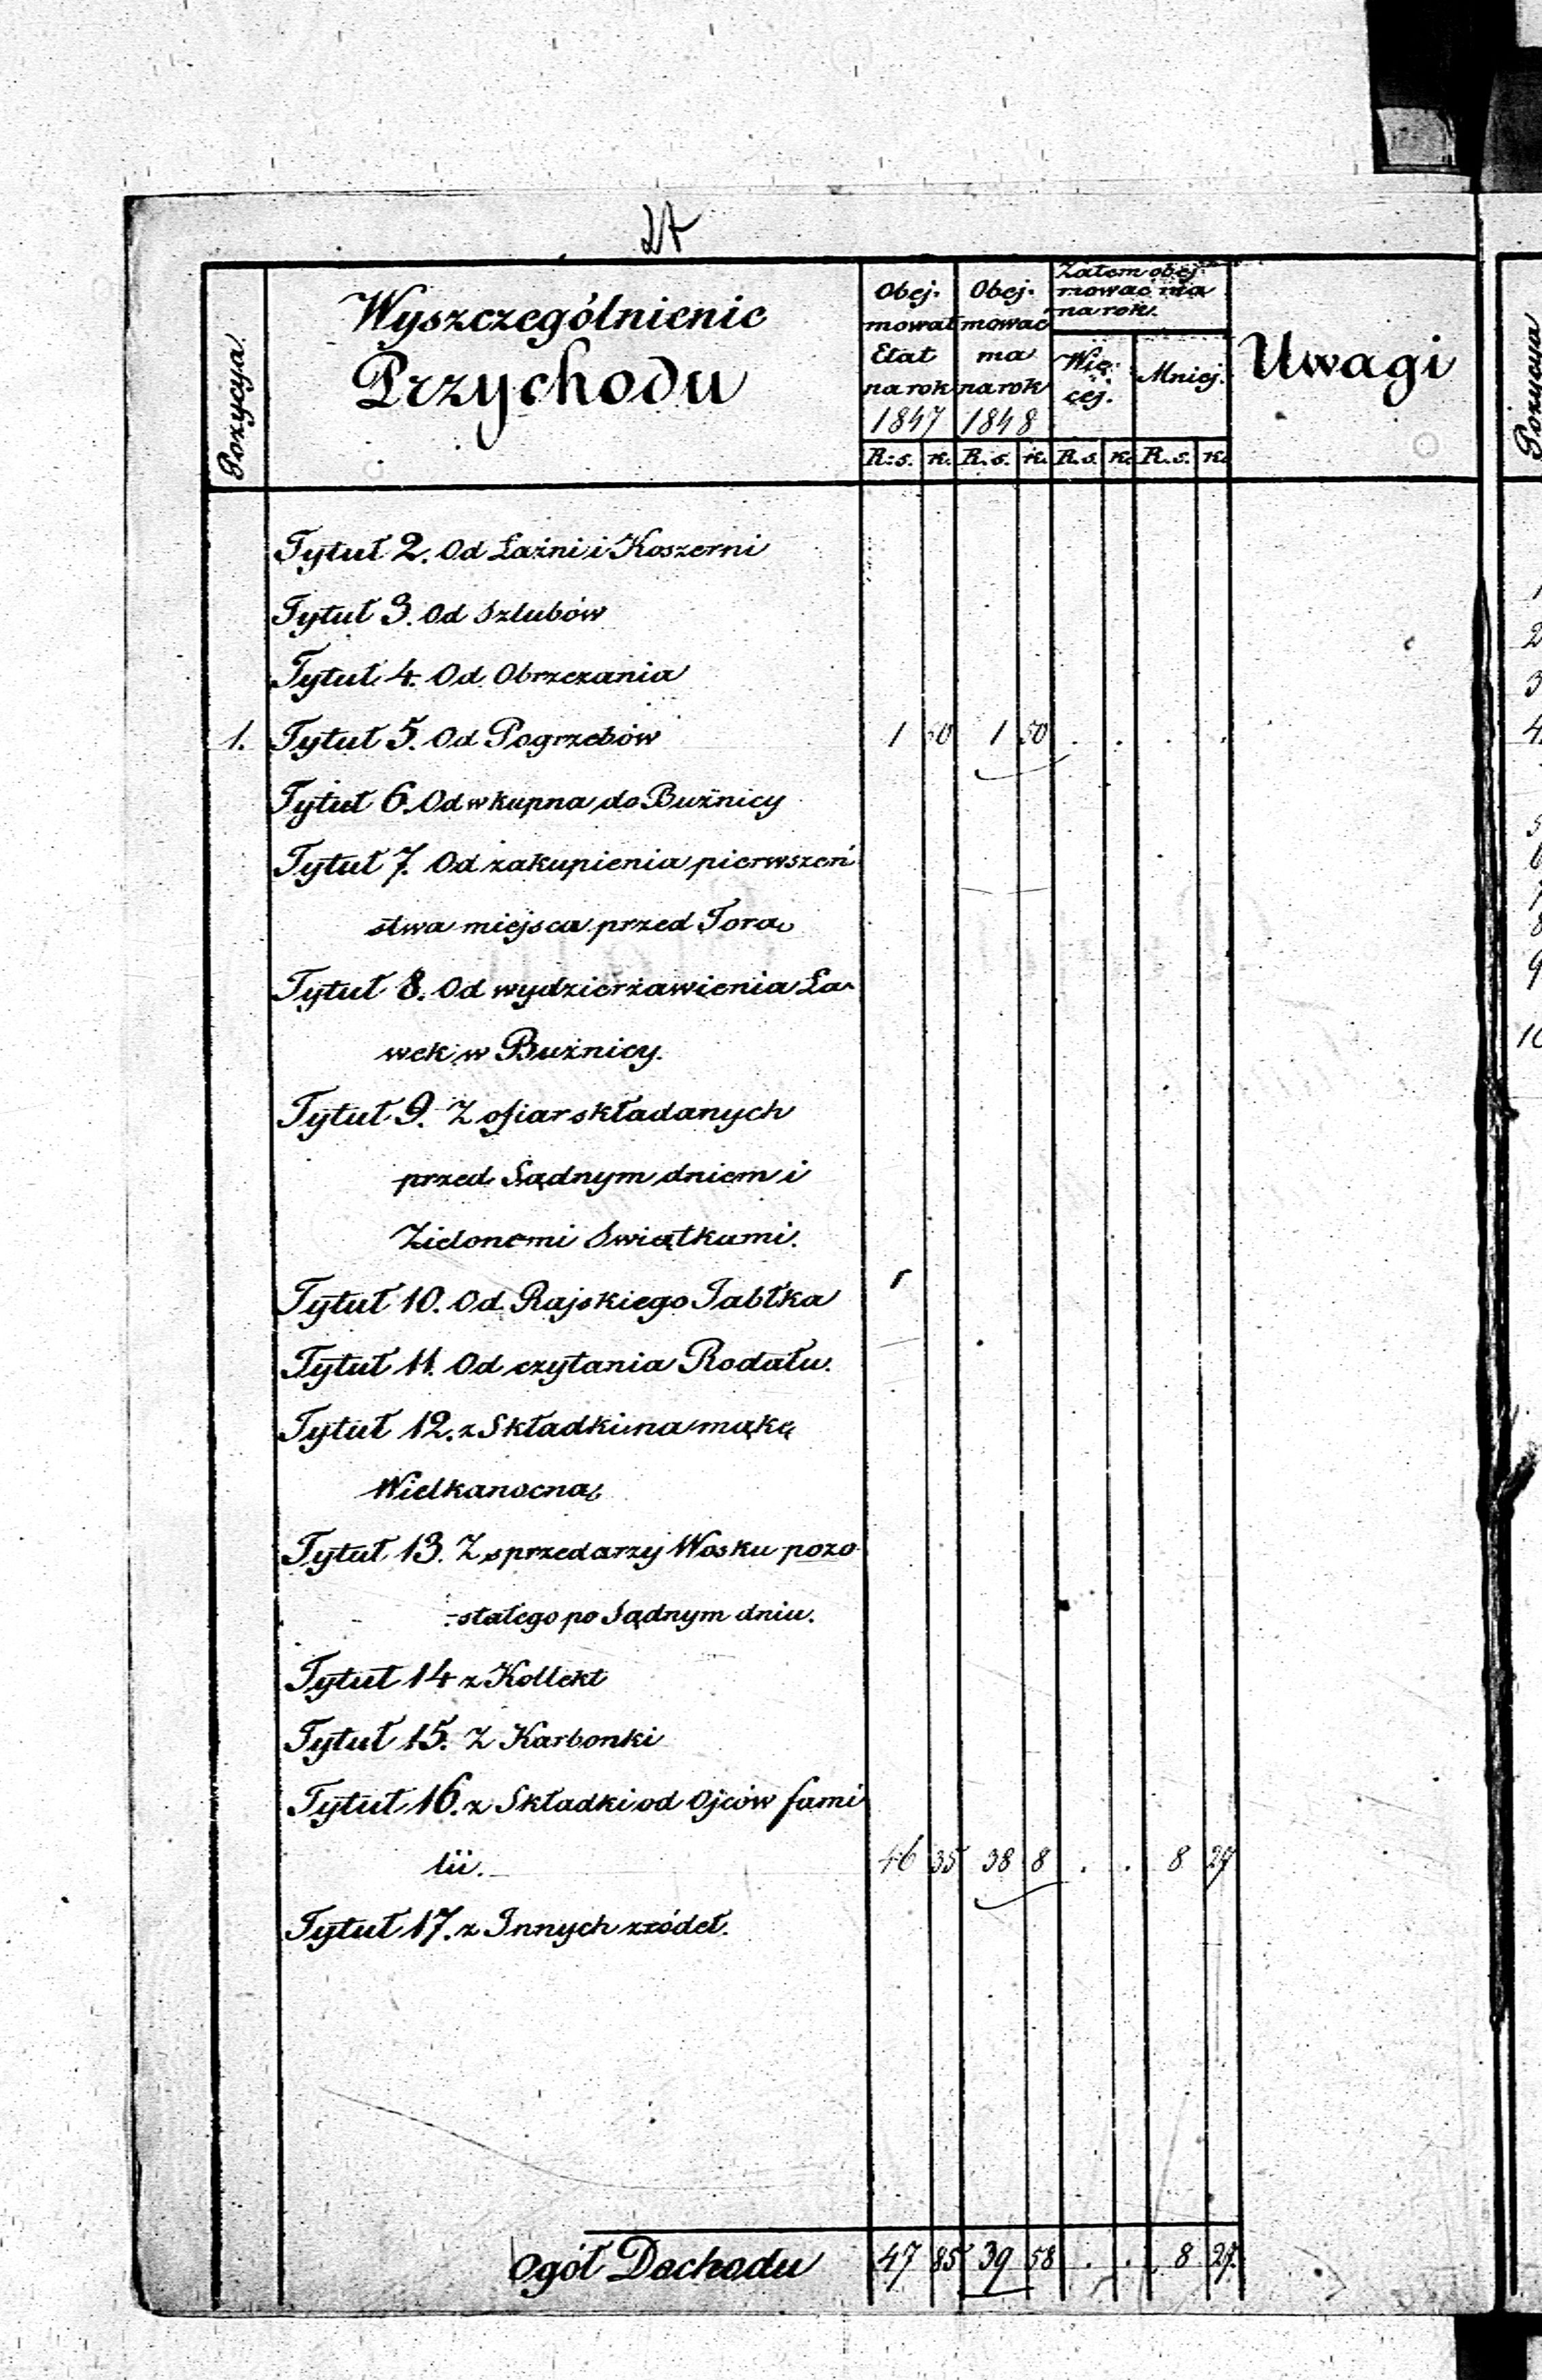 Pozycya.
Wyszczególnienie
Przychodu
Obej-
mował
Etat
na rok
1847
Obej-
mować
ma
na rok
1848
Zatem obej-
mować ma
na rok.
Wię-
cej.
Mniej.
Uwagi
R:s. k. R.s. k. R.s. k. R.s. k.
Tytuł 2. Od Łaźni i Koszerni
Tytuł 3. Od Szlubów
Tytuł 4. Od Obrzezania
1. Tytuł 5. Od Pogrzebów 1 50 1 50 . . . .
Tytuł 6. Od wkupna do Bużnicy
Tytuł 7. Od zakupienia pierwszeń
stwa miejsca przed Torą
Tytuł 8. Od wydzierżawienia Ła-
wek w Bużnicy.
Tytuł 9. Z ofiar składanych
przed Sądnym dniem i
Zielonemi Swiątkami.
Tytuł 10. Od Rajskiego Jabłka
Tytuł 11. Od czytania Rodału.
Tytuł 12. z Składki na mąkę
Wielkanocną
Tytuł 13. Z sprzedarzy Wosku pozo
-stałego po Sądnym dniu.
Tytuł 14 z Kollekt
Tytuł 15. Z Karbonki
Tytuł 16. z Składki od Ojców fami
lii. 46 35 38 8 . . 8 27
Tytuł 17. z Innych źródeł.
Ogół Dochodu 47 85 39 58 . . 8 27.
Pozycya
1
2
3
4.
5
6
7
8
9
10